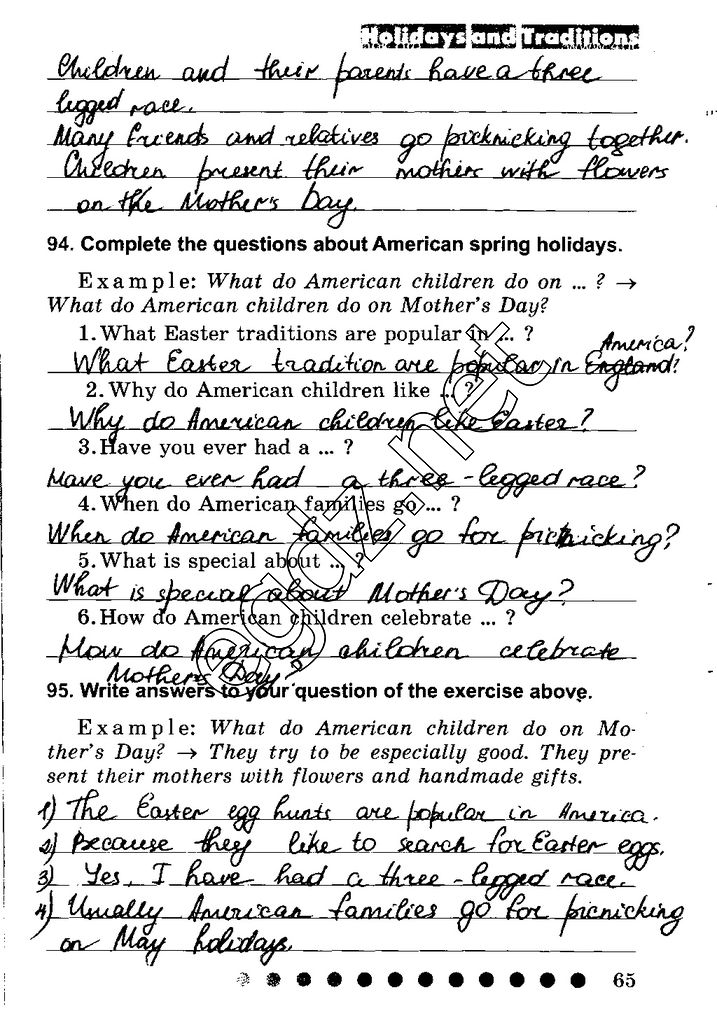 Holidays and Traditions
Children and their parents have a three
legged race.
Many friends and relatives go picknicking together.
Children present their mothers with flowers
on the Mother's Day.
94. Complete the questions about American spring holidays.
Example: What do American children do on ... ? →
What do American children do on Mother's Day?
1. What Easter traditions are popular in ... ?
America?
What Easter tradition are popular in England?
2. Why do American children like ... ?
Why do American children like Easter?
3. Have you ever had a ... ?
Have you ever had a three-legged race?
4. When do American families go ... ?
When do American families go for picknicking?
5. What is special about ... ?
What is special about Mother's Day?
6. How do American children celebrate ... ?
How do American children celebrate
Mother's Day?
95. Write answers to your question of the exercise above.
Example: What do American children do on Mo-
ther's Day? → They try to be especially good. They pre-
sent their mothers with flowers and handmade gifts.
1) The Easter egg hunts are popular in America.
2) Because they like to search for Easter eggs.
3) Yes, I have had a three-legged race.
4) Usually American families go for picnicking
on May holidays.
65
egdz.net